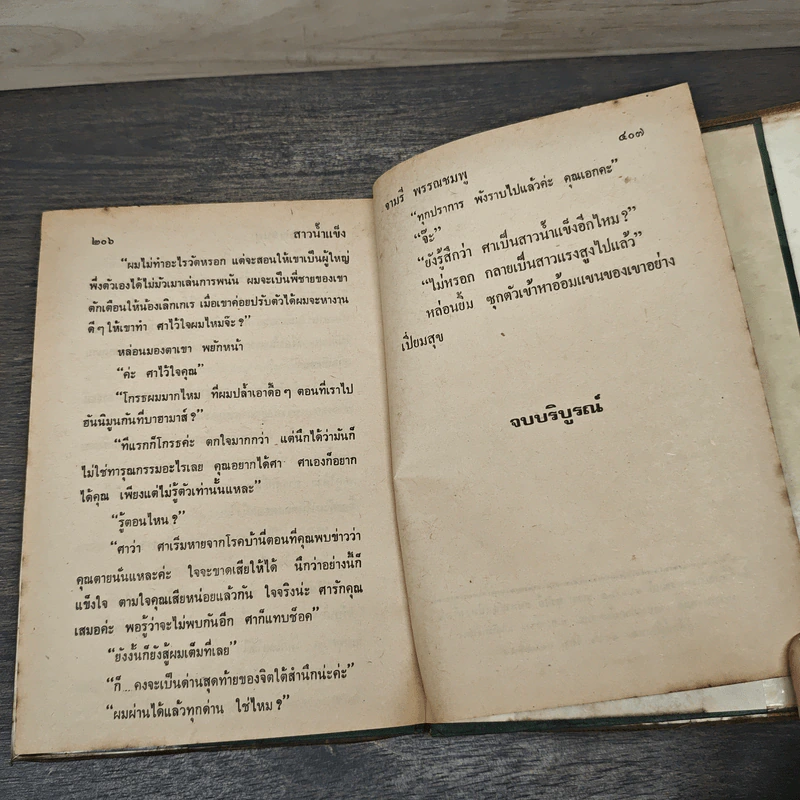 ๒๐๖ สาวน้ำแข็ง
“ผมไม่ทำอะไรวัตหรอก แต่จะสอนให้เขาเป็นผู้ใหญ่
พึ่งตัวเองได้ไม่มัวเมาเล่นการพนัน ผมจะเป็นพี่ชายของเขา
ตักเตือนให้น้องเลิกเกเร เมื่อเขาค่อยปรับตัวได้ผมจะหางาน
ดีๆ ให้เขาทำ ศาไว้ใจผมไหมจ๊ะ ?”
หล่อนมองตาเขา พยักหน้า
“ค่ะ ศาไว้ใจคุณ”
“โกรธผมมากไหม ที่ผมปล้ำเอาดื้อๆ ตอนที่เราไป
ฮันนิมูนกันที่บาฮามาส์ ?”
“ทีแรกก็โกรธค่ะ ตกใจมากกว่า แต่นึกได้ว่ามันก็
ไม่ใช่ทารุณกรรมอะไรเลย คุณอยากได้ศา ศาเองก็อยาก
ได้คุณ เพียงแต่ไม่รู้ตัวเท่านั้นแหละ”
“รู้ตอนไหน ?”
“ศาว่า ศาเริ่มหายจากโรคบ้านี่ตอนที่คุณพบข่าวว่า
คุณตายนั่นแหละค่ะ ใจจะขาดเสียให้ได้ นึกว่าอย่างนี้ก็
แข็งใจ ตามใจคุณเสียหน่อยแล้วกัน ใจจริงน่ะ ศารักคุณ
เสมอค่ะ พอรู้ว่าจะไม่พบกันอีก ศาก็แทบช็อค”
“ยังงั้นก็ยังสู้ผมเต็มที่เลย”
“ก็ ... คงจะเป็นด่านสุดท้ายของจิตใต้สำนึกน่ะค่ะ”
“ผมผ่านได้แล้วทุกด่าน ใช่ไหม ?”
จามรี พรรณชมพู ๔๐๗
“ทุกปราการ พังราบไปแล้วค่ะ คุณเอกคะ”
“จ๊ะ”
“ยังรู้สึกว่า ศาเป็นสาวน้ำแข็งอีกไหม ?”
“ไม่หรอก กลายเป็นสาวแรงสูงไปแล้ว”
หล่อนยิ้ม ซุกตัวเข้าหาอ้อมแขนของเขาอย่าง
เปี่ยมสุข
จบบริบูรณ์